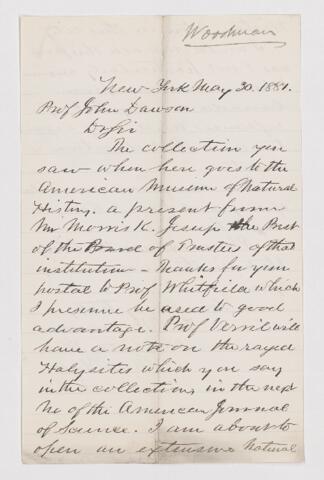 Woodman
New-York May 30. 1881.
Prof John Dawson
D Sir
The collection you
saw when here goes to the
American Museum of Natural
History. a present from
Mr Morris K. Jesup the Prest
of the Board of Trustees of that
institution - Thanks for your
postal to Prof Whitfield which
I presume be used to good
advantage. Prof Verril will
have a note on the rayed
Halysites which you say
in the collection, in the next
No of the American Journal
of Science. I am about to
open an extensive Natural